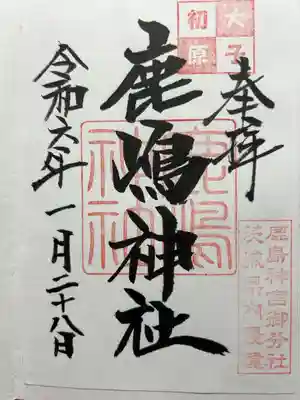 奉拝
大子
初原
鹿嶋神社
鹿嶋
神社
令和六年一月二十八日
鹿島神宮御分社
茨城県内最